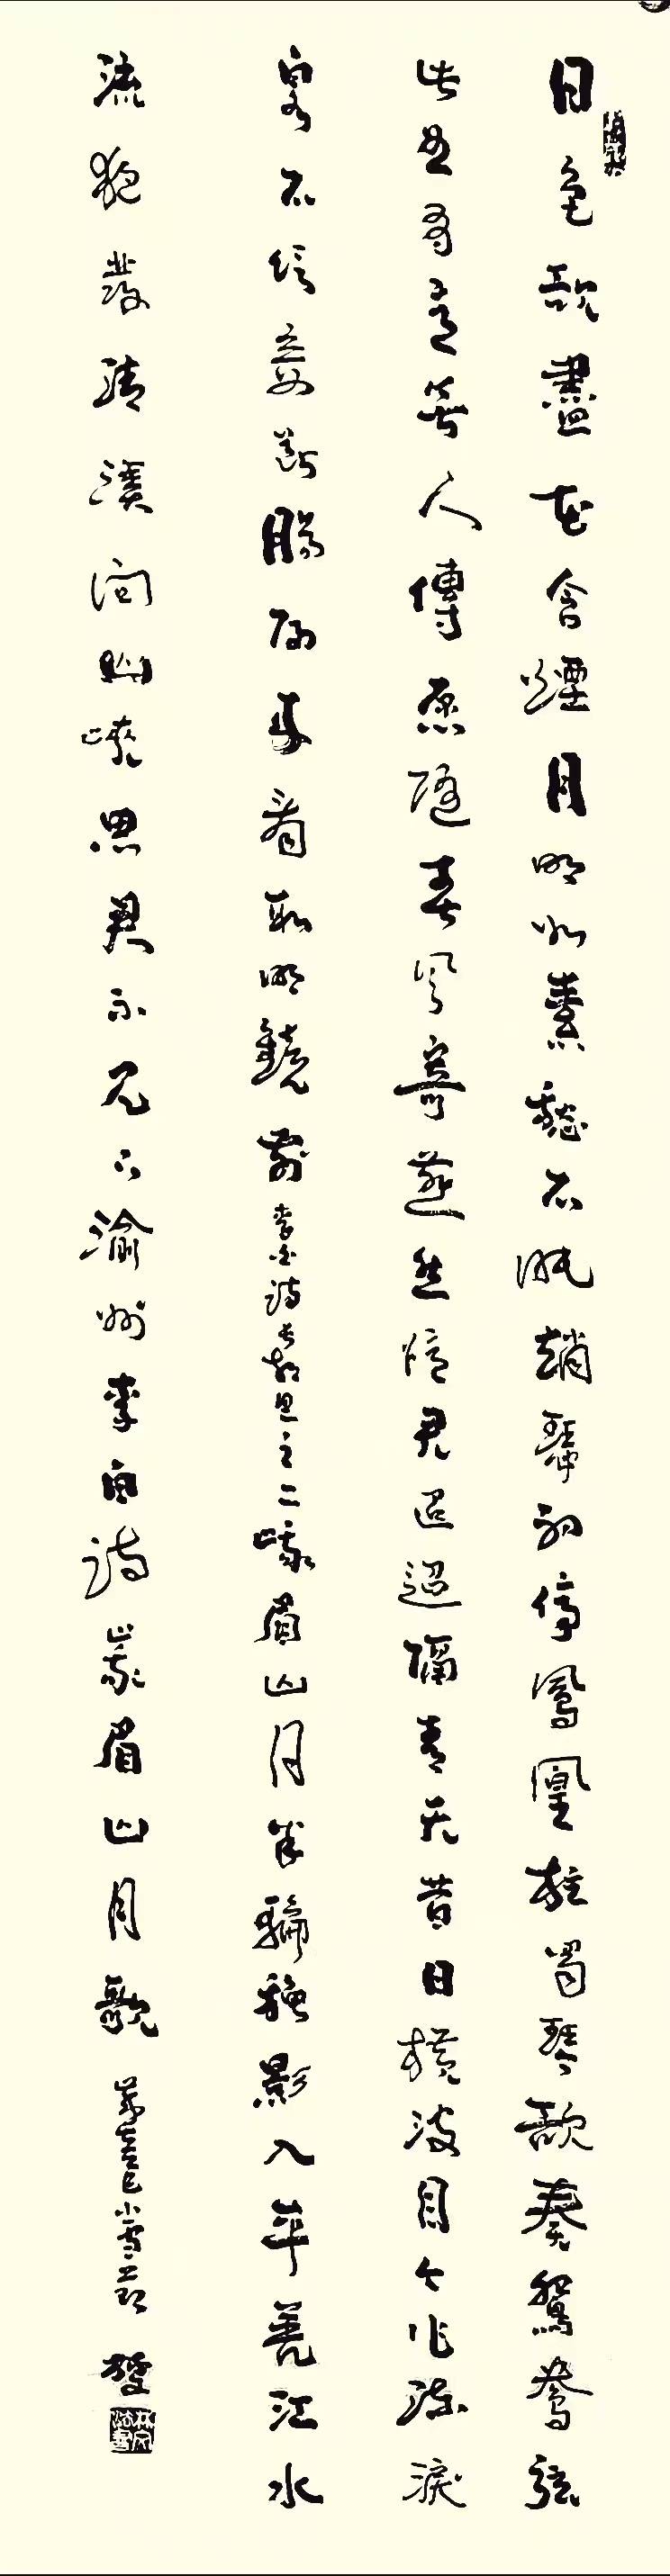 日色欲盡花含煙月明如素愁不眠趙瑟初停鳳凰柱蜀琴欲奏鴛鴦弦
此曲有意無人傳愿隨春風寄燕然憶君迢迢隔青天昔日橫波目今作流淚
泉不信妾斷腸歸來看取明鏡前李白詩長相思之二峨眉山月半輪秋影入平羌江水
流夜發清溪向三峽思君不見下渝州李白詩峨眉山月歌歲在乙巳小雪